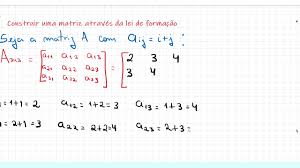 Construir uma matriz através da lei de formação
Seja a matriz A com aij = i+j :
A3x3 = [a11 a12 a13 = [2 3 4
a21 a22 a23 3 4
a31 a32 a33]
= 1+1 = 2 a12 = 1+2 = 3 a13 = 1+3 = 4
= 2+1 = 3 a22 = 2+2 = 4 a23 = 2+3 =